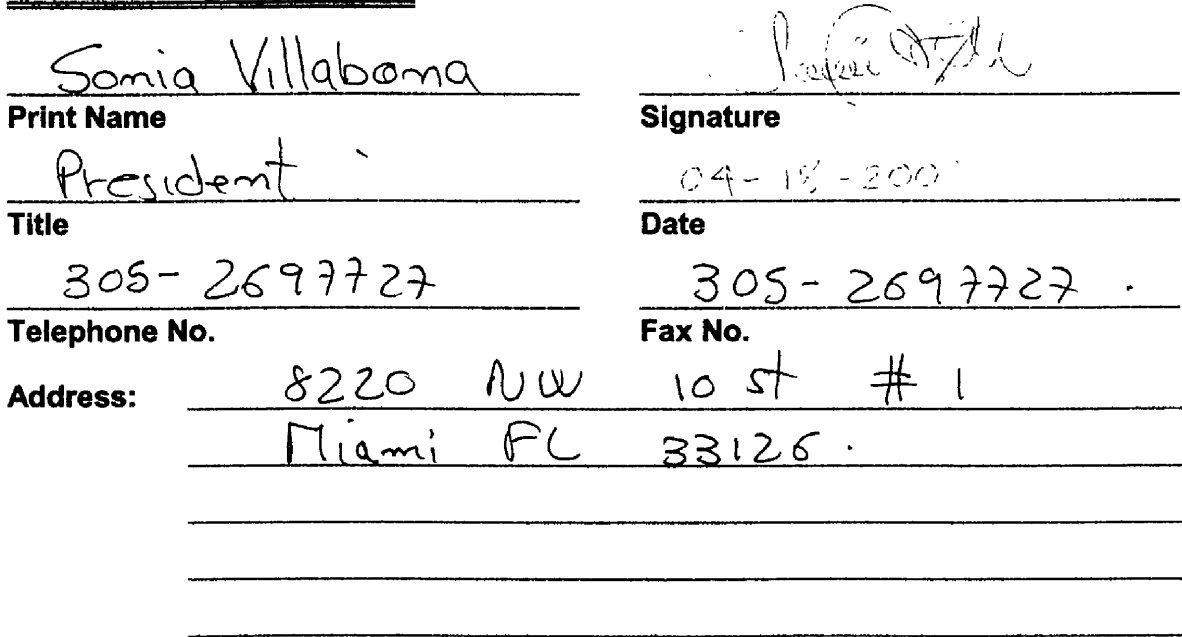 Sonia Villabona
Print Name Signature
President
Title Date
305-2697727 305-2697727.
Telephone No. Fax No.
Address: 8220 NW 10 st # 1
Miami FL 33126.